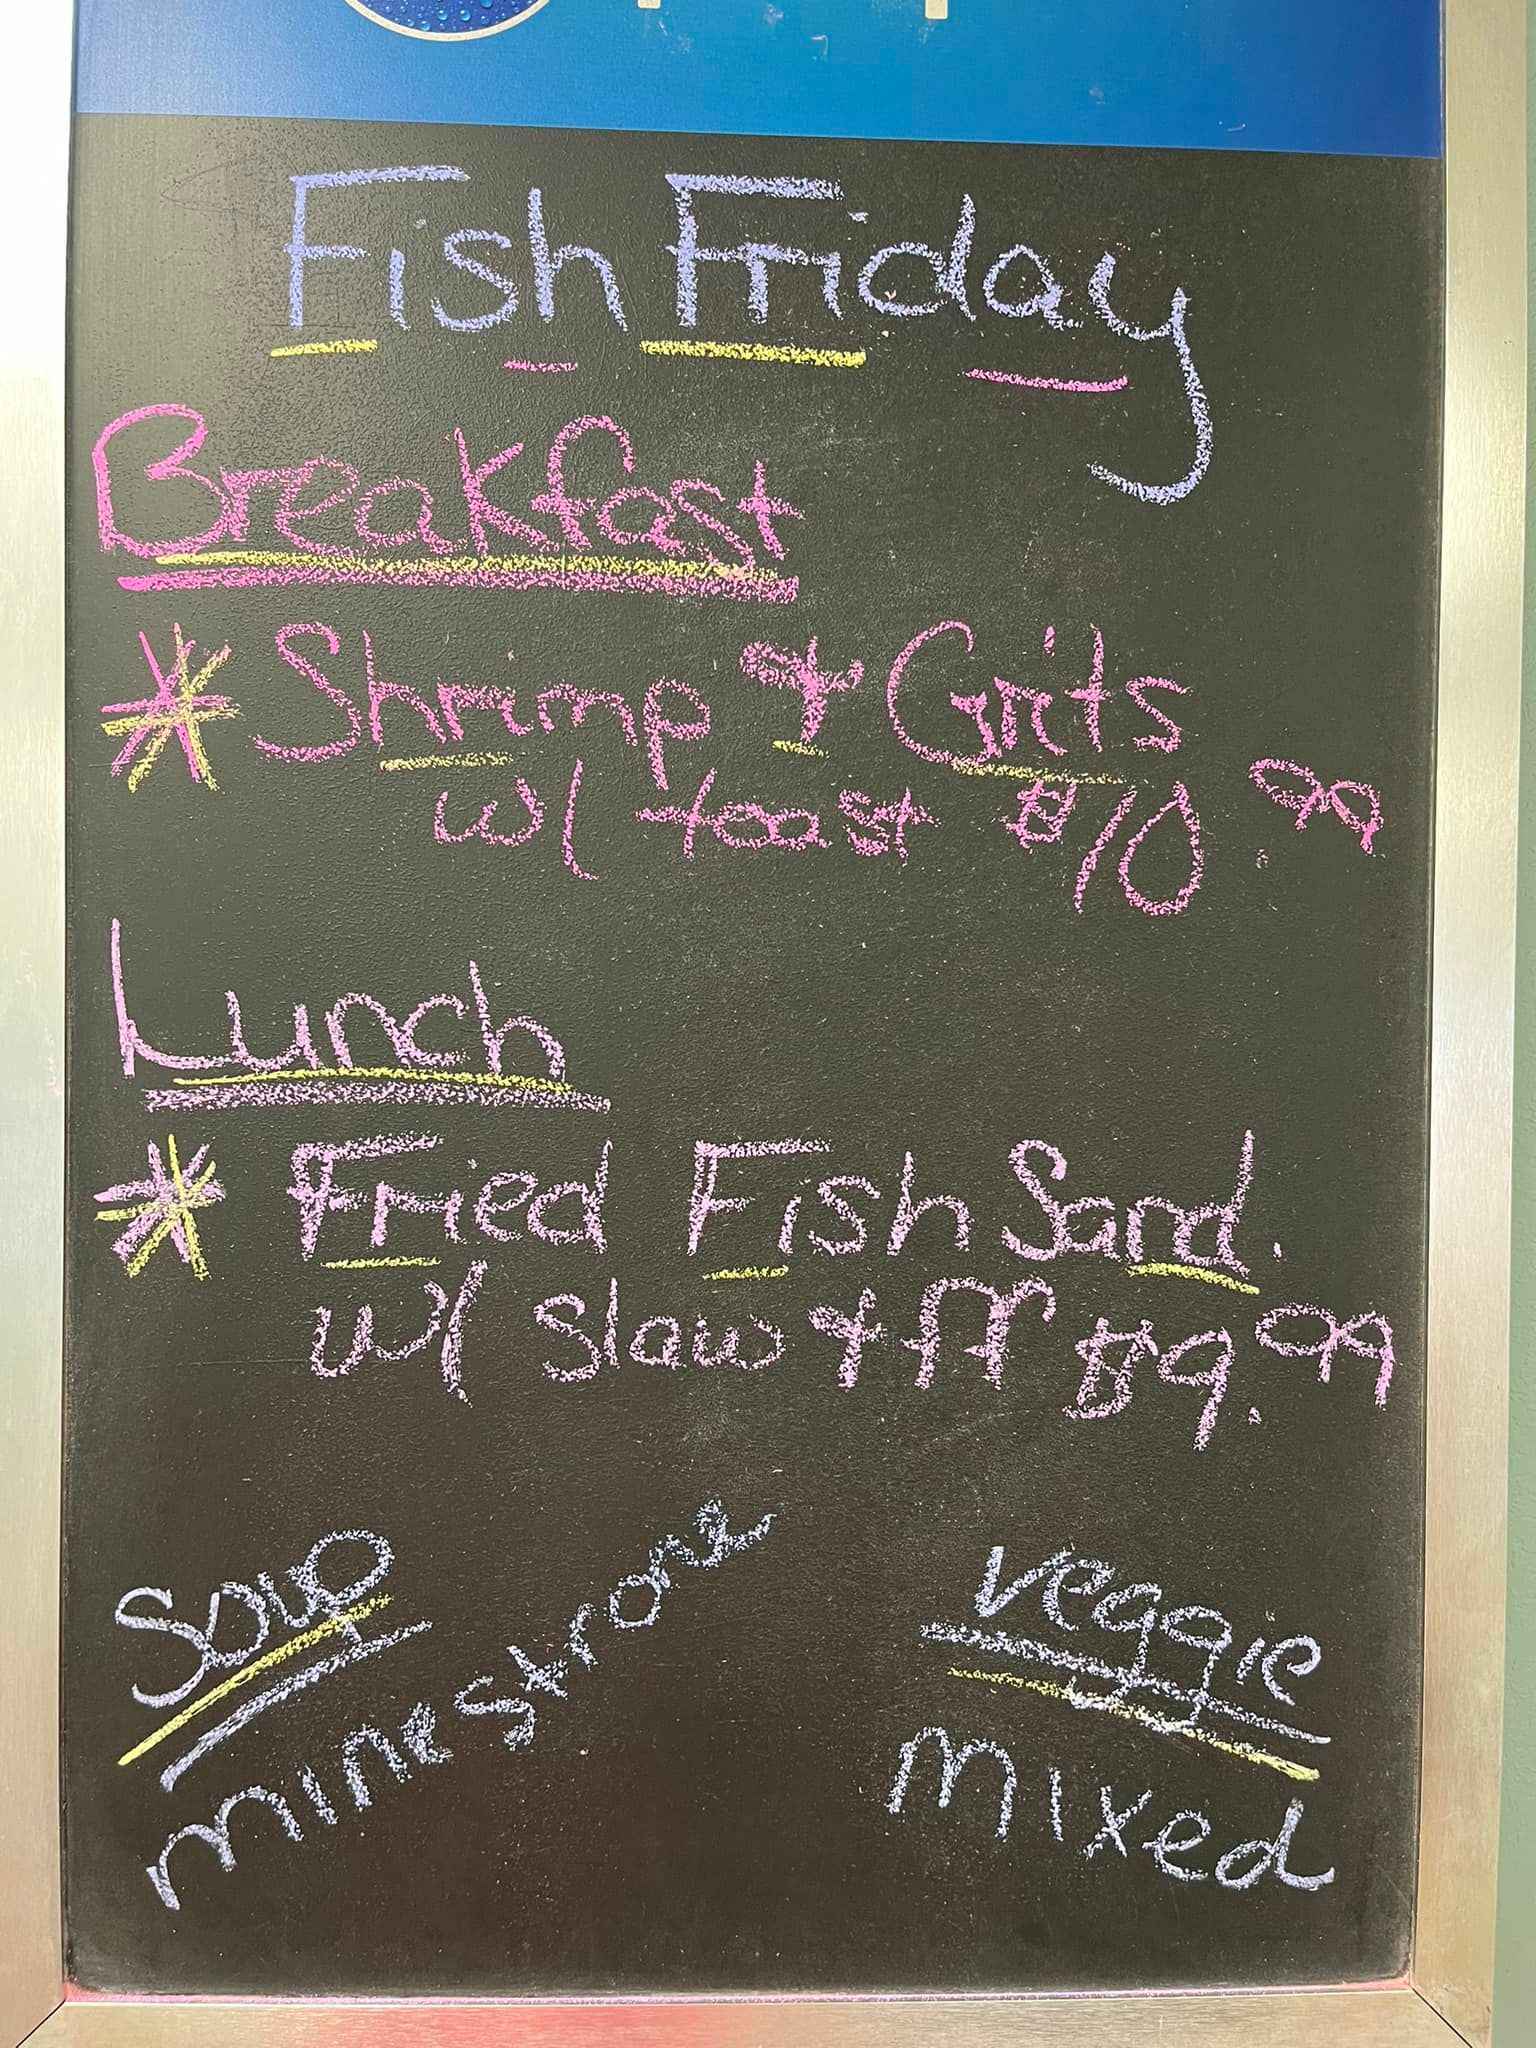 Fish Friday
Breakfast
* Shrimp & Grits
w/ toast $10.99
Lunch
* Fried Fish Sand.
w/ slaw & FF $9.99
Soup
minestrone
Veggie
mixed